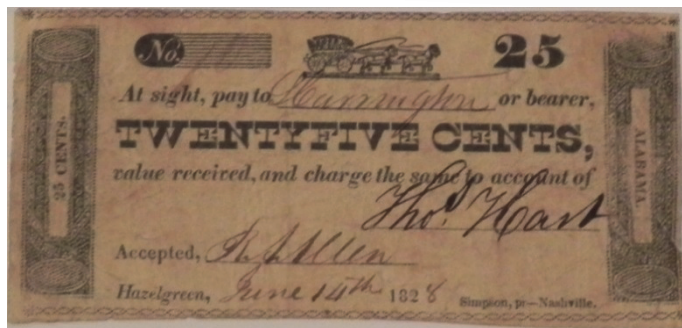 No. 25
At sight, pay to Harrington or bearer,
TWENTYFIVE CENTS,
value received, and charge the same to account of
Thos. Hart
Accepted, Allen
Hazelgreen, June 14th 1828
Simpson, pr—Nashville.
25 CENTS.
ALABAMA.